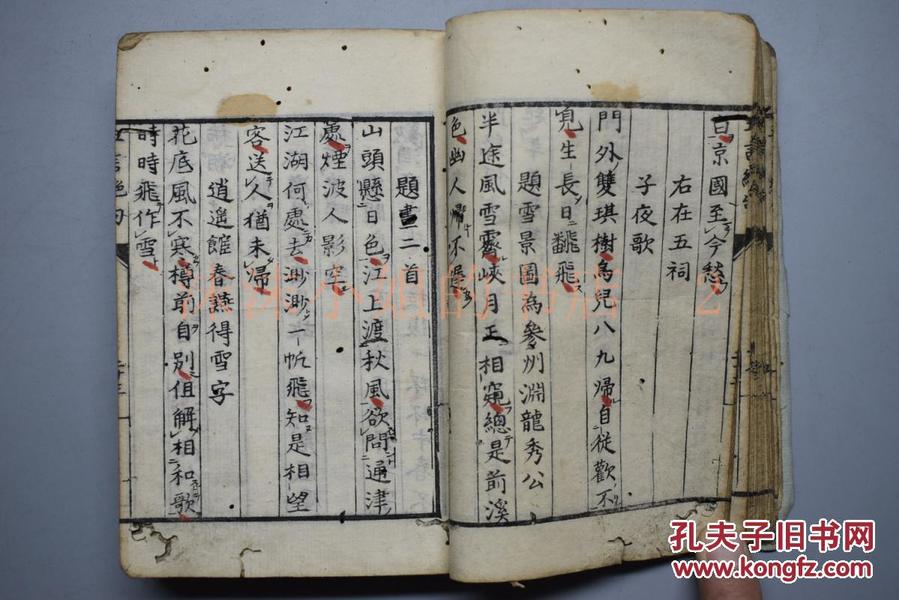 京國至今愁
右在五祠
子夜歌
門外雙琪樹烏兒八九歸自從歡不
覓生長日飜飛
題雪景圖為參州淵龍秀公
半途風雪霽峽月正相窺總是前溪
色幽人歸不
題畫二首
山頭懸日色江上渡秋風欲問通津
處煙波人影空
江湖何處去渺渺一帆飛知是相望
客送人猶未歸
逍遙館春讌得雪字
花底風不寒樽前自別伹解相和歌
時時飛作雪
孔夫子旧书网
KONGFZ.COM